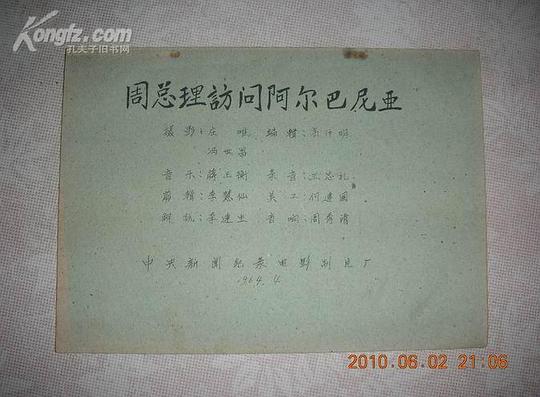 Kongfz.com
孔夫子旧书网
周总理訪问阿尔巴尼亚
摄影：庄 唯 编辑：
冯世昌
音乐：蒋玉衡 录音：王忠礼
剪辑：李慧仙 美工：何建国
解说：李连生 音响：周秀清
中央新闻纪录电影制片厂
1964.4.
2010.06.02 21:06